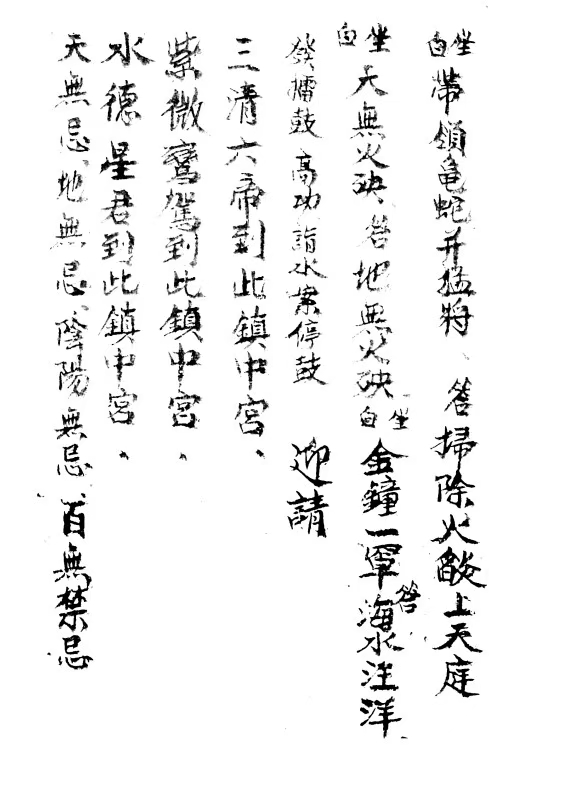 坐白 帶領亀蛇并猛將、答掃除火燄上天庭
坐白 天無火殃、答地無火殃 坐白 金鐘一罩 答海水汪洋、
發擂鼓 高功詣水案停鼓 迎請
三清六帝到此鎮中宮、
紫微鸞駕到此鎮中宮、
水德星君到此鎮中宮、
天無忌、地無忌、陰陽無忌、百無禁忌